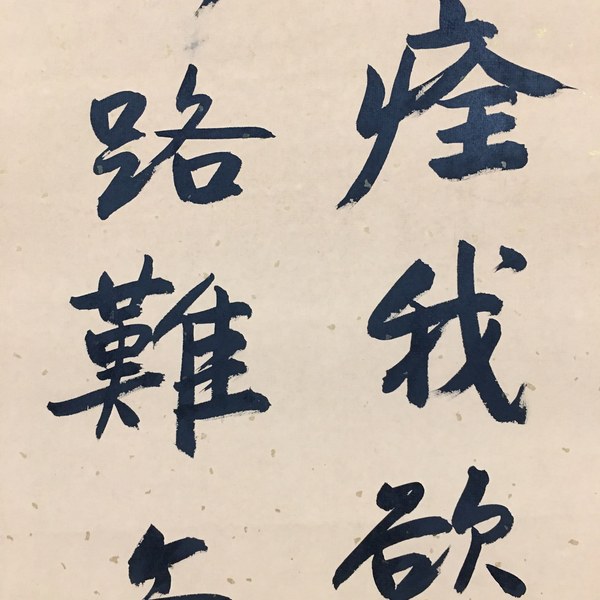 痊我欲
路難